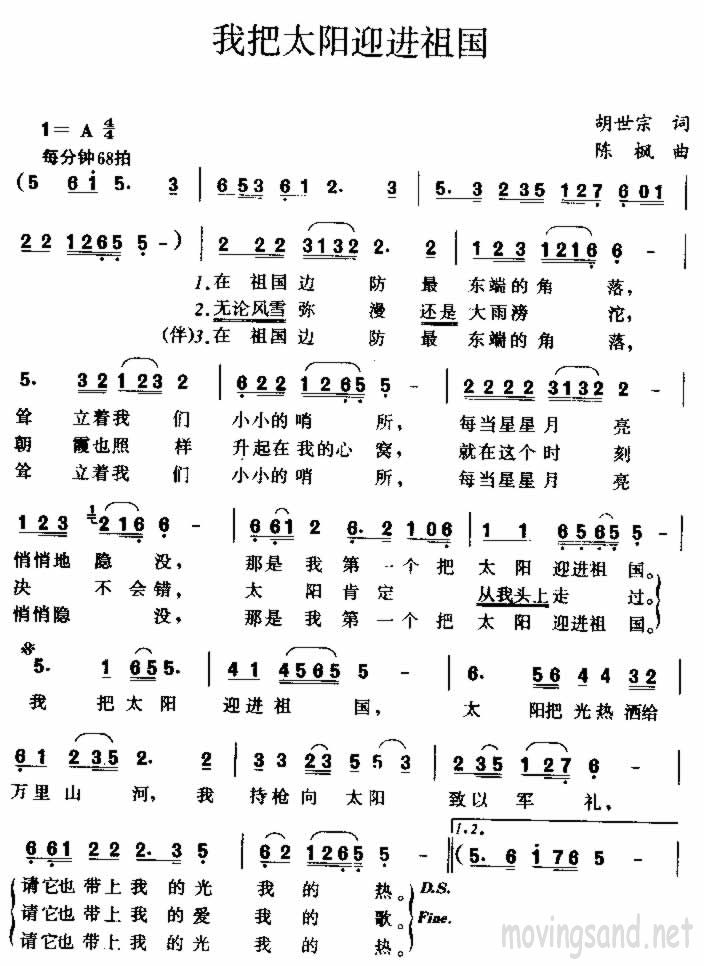 我把太阳迎进祖国
1= A 4/4
胡世宗 词
每分钟68拍
陈 枫 曲
(5 6 i 5. 3 | 6 5 3 6 1 2. 3 | 5. 3 2 3 5 1 2 7 6 0 1 |
2 2 1 2 6 5 5 -) | 2 2 2 3 1 3 2 2. 2 | 1 2 3 1 2 1 6 6 - |
1.在 祖国 边 防 最 东端的 角 落,
2.无论风雪 弥 漫 还是 大雨滂 沱,
(伴)3.在 祖国 边 防 最 东端的 角 落,
5. 3 2 1 2 3 2 | 6 2 2 1 2 6 5 5 - | 2 2 2 2 3 1 3 2 2 - |
耸 立着我 们 小小的 哨 所, 每当星星 月 亮
朝 霞也照 样 升起在 我的心 窝, 就在这个 时 刻
耸 立着我 们 小小的 哨 所, 每当星星 月 亮
1 2 3 1/ 2 1 6 6 - | 6 6 1 2 6. 2 1 0 6 | 1 1 6 5 6 5 5 - |
悄悄地 隐 没, 那是 我 第 一个 把 太 阳 迎进祖 国。
决 不会 错, 太 阳 肯定 从我头上 走 过。
悄悄隐 没, 那是 我 第 一个 把 太 阳 迎进祖 国。
5. 1 6 5 5. | 4 1 4 5 6 5 5 - | 6. 5 6 4 4 3 2 |
我 把 太 阳 迎进 祖 国, 太 阳把 光 热 洒给
6 1 2 3.5 2. 2 | 3 3 2 3 5 5 3. | 2 3 5 1 2 7 6 - |
万里 山 河, 我 持枪 向 太阳 致以 军 礼,
1.2.
6 6 1 2 2 2. 3 5 | 6 2 1 2 6 5 5 - ‖ (5. 6 i 7 6 5 5 - |
请它也 带上 我 的 光 我 的 热。 D.S.
请它也 带上 我 的 爱 我 的 歌。 Fine.
请它也 带上 我 的 光 我 的 热。
movingsand.net